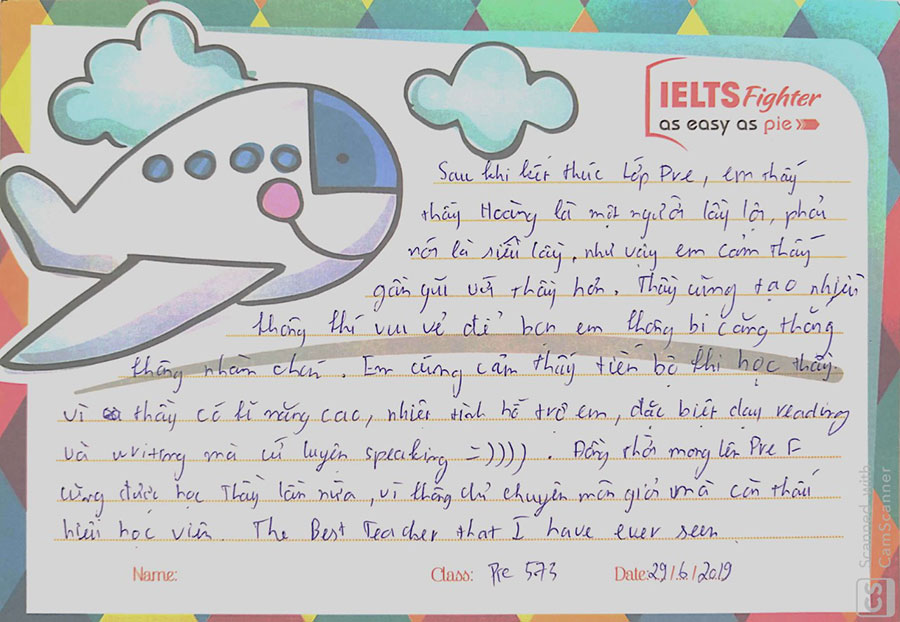 IELTS Fighter
as easy as pie
Sau khi kết thúc lớp Pre, em thấy
thầy Hoàng là một người lầy lội, phải
nói là siêu lầy, như vậy em cảm thấy
gần gũi với thầy hơn. Thầy cũng tạo nhiều
không khí vui vẻ để bọn em không bị căng thẳng
không nhàn chán. Em cũng cảm thấy tiến bộ khi học thầy
vì thầy có kĩ năng cao, nhiệt tình hỗ trợ em, đặc biệt dạy reading
và writing mà cứ luyện speaking =)))) . Đồng thời mong lên Pre F
cũng được học Thầy lần nữa, vì không chỉ chuyên môn giỏi mà còn thấu
hiểu học viên. The Best Teacher that I have ever seen
Name:
Class: Pre 573
Date: 29/6/2019
Scanned with
CamScanner
CS